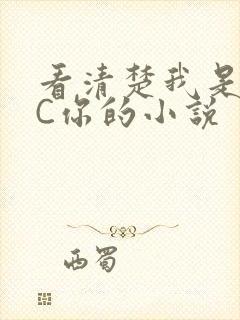 看清楚我是
C你的小说
西蜀